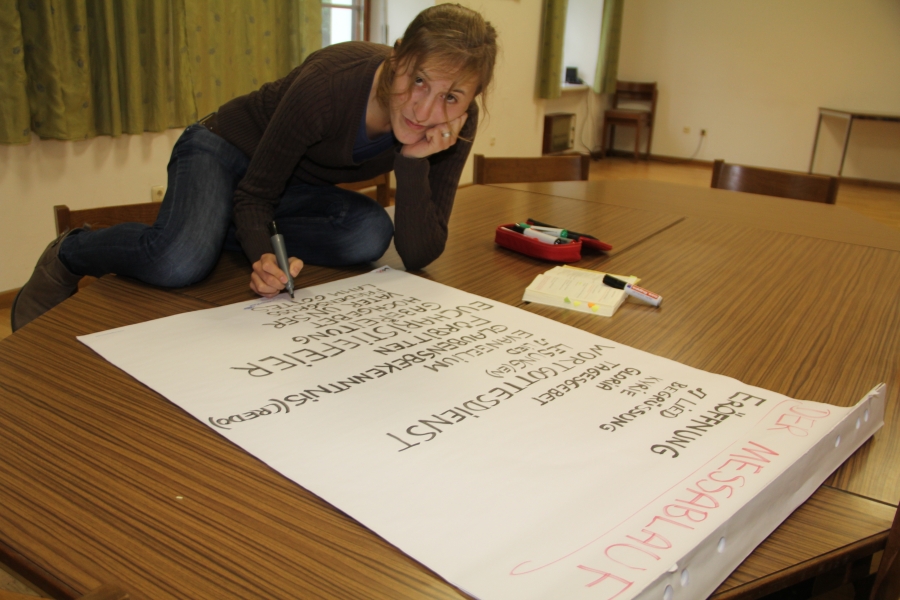 DER MESSABLAUF
ERÖFFNUNG
♫ LIED
BEGRÜSSUNG
KYRIE
GLORIA
TAGESGEBET
WORTGOTTESDIENST
LESUNG(EN)
♫ LIED
EVANGELIUM
GLAUBENSBEKENNTNIS (CREDO)
FÜRBITTEN
EUCHARISTIEFEIER
HOCHGEBET
VATER UNSER
LAMM GOTTES